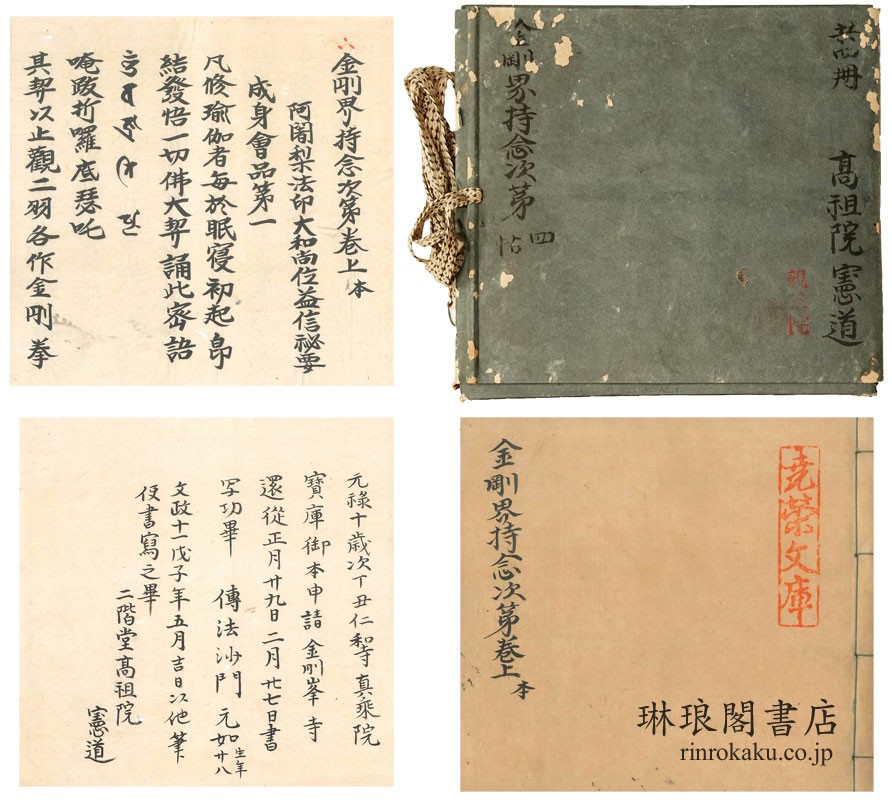 金剛界持念次第卷上 本
阿闍梨法印大和尚位益信祕要
成身會品第一
凡修瑜伽者每於眠寝初起卽
結發悟一切佛大契誦此密語
唵跋折囉底瑟吒
其契以止觀二羽各作金剛拳
共四冊
高祖院 憲道
金剛界持念次第 四帖
元祿十歲次丁丑仁和寺真乘院
寶庫御本申請金剛峯寺
還從正月廿九日二月廿七日書
写功畢 傳法沙門元如 生年廿八
文政十一戊子年五月吉日以他筆
書寫之畢
二階堂高祖院
憲道
堯榮文庫
金剛界持念次第卷上 本
琳琅閣書店
rinrokaku.co.jp